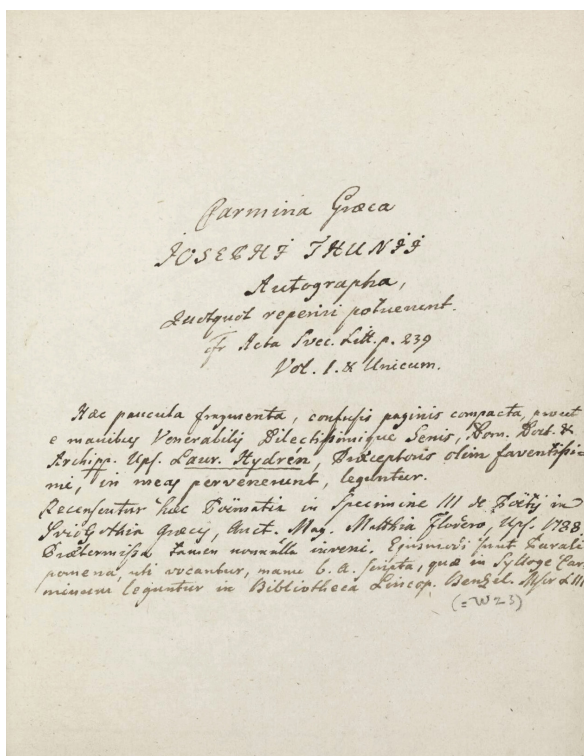 Carmina Græca
JOSEPHI THUNII
Autographa,
Quotquot reperiri potuerunt.
cfr Acta Svec. Litt. p. 239
Vol. I. & Unicum.
Hæc paucula fragmenta, confusis paginis compacta, prout
e manibus Venerabilis Dilectissimique Senis, Dom. Doct. &
Archipp. Ups. Laur. Hydrén, Præceptoris olim faventissi-
mi, in meas pervenerunt, leguntur.
Recensentur hæc Poëmatia in Specimine III de Poëtis in
SvioGothia Græcis, Auct. Mag. Matthia Florero, Ups. 1788
Prætermissa tamen nonnulla inveni. Ejusmodi sunt Parali
pomena, uti vocantur, manu b. a. scripta, quæ in Sylloge Car
minum leguntur in Bibliotheca Lincop. Benzel. Mscr LIII
(= W 23)